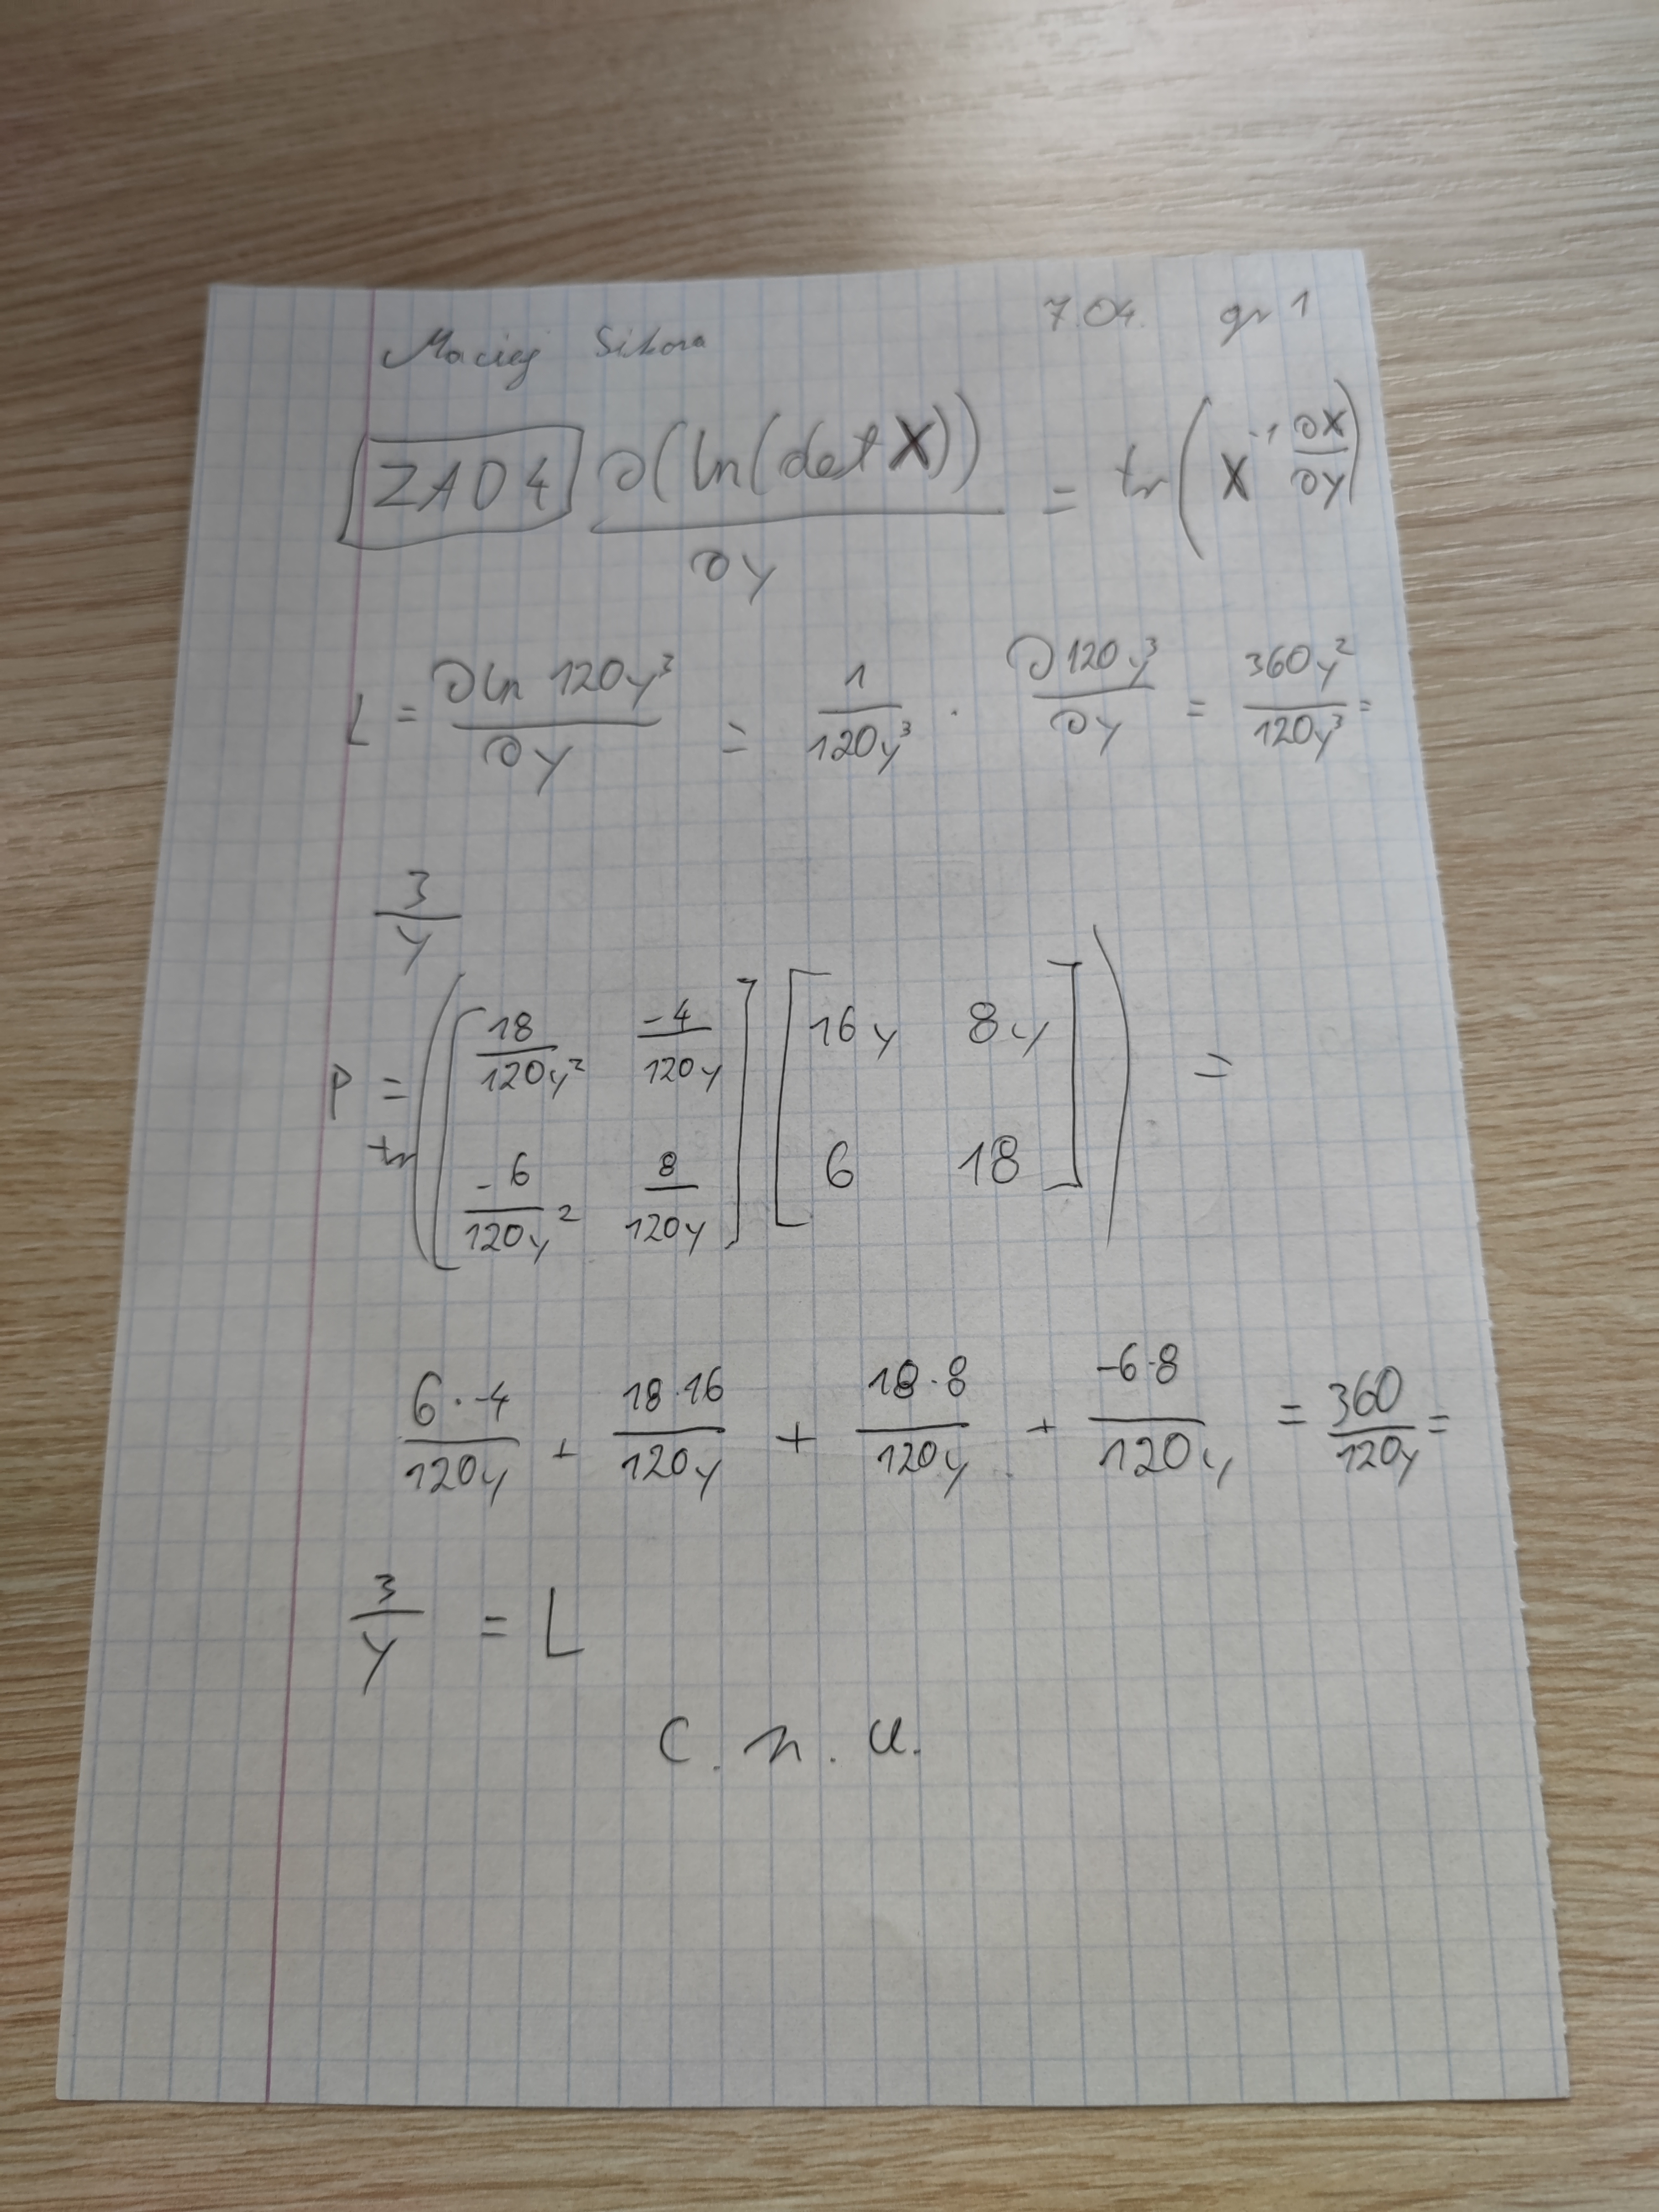 Maciej Sikora 7.04. gr 1
ZAD 4 ∂(ln(det X)) / ∂y = tr(X⁻¹ ∂X/∂y)
L = ∂ln 120y³ / ∂y = 1/120y³ · ∂120y³/∂y = 360y²/120y³ =
3/y
P = tr([18/120y² -4/120y; -6/120y² 8/120y] [16y 8y; 6 18]) =
6·-4/120y + 18·16/120y + 18·8/120y + -6·8/120y = 360/120y =
3/y = L
C.n.u.